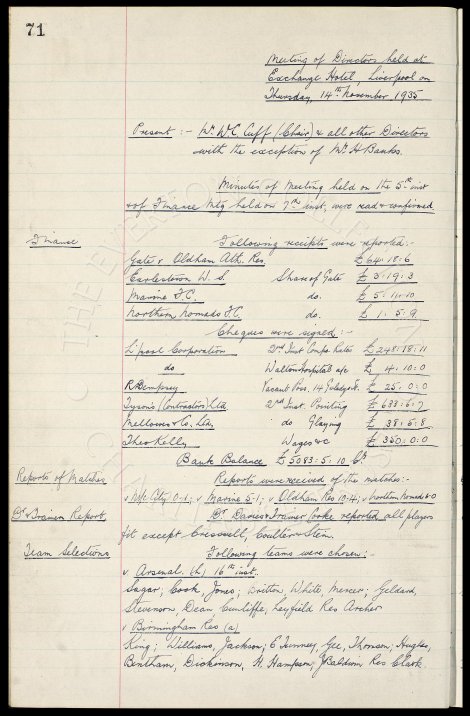 71
Meeting of Directors held at
Exchange Hotel, Liverpool on
Thursday, 14th November 1935
Present :- Mr. W.C. Cuff (Chair) & all other Directors
with the exception of Mr. H. Banks.
Minutes of Meeting held on the 5th inst
& of Finance Mtg held on 7th inst, were read & confirmed
Finance Following receipts were reported:-
Gate v Oldham Ath. Res £64:18:6
Earlestown W. S. Share of Gate £3:19:3
Marine F.C. do. £5:11:10
Northern Nomads F.C. do £1:5:9
Cheques were signed:-
L'pool Corporation 2nd Inst Rates £248:18:11
do Walton Hospital a/c £4:10:0
R. Dempsey Vacant Poss. 14 £25:0:0
Tysons (Contractors) Ltd 2nd Inst. £633:6:7
Mellowes & Co. Ltd. do Glazing £38:5:8
Theo Kelly Wages &c £350:0:0
Bank Balance £5083:5:10
Reports of Matches Reports were received of the matches:-
v M/c City 0-1; v Marine 5-1; v Oldham Res ; v Northern Nomads
Dr & Trainers Report. Dr. Davies & Trainer Cooke reported all players
fit except Cresswell, Coulter & Stein.
Team Selections Following teams were chosen:-
v Arsenal (h) 16th inst.
Sagar; Cook, Jones; Britton, White, Mercer; Geldard,
Stevenson, Dean, Cunliffe, Leyfield Res Archer
v Birmingham Res (a)
King; Williams, Jackson; E Tunney, Gee, Thomson; Hughes,
Bentham, Dickinson, H. Hampson, J Baldwin Res Clark